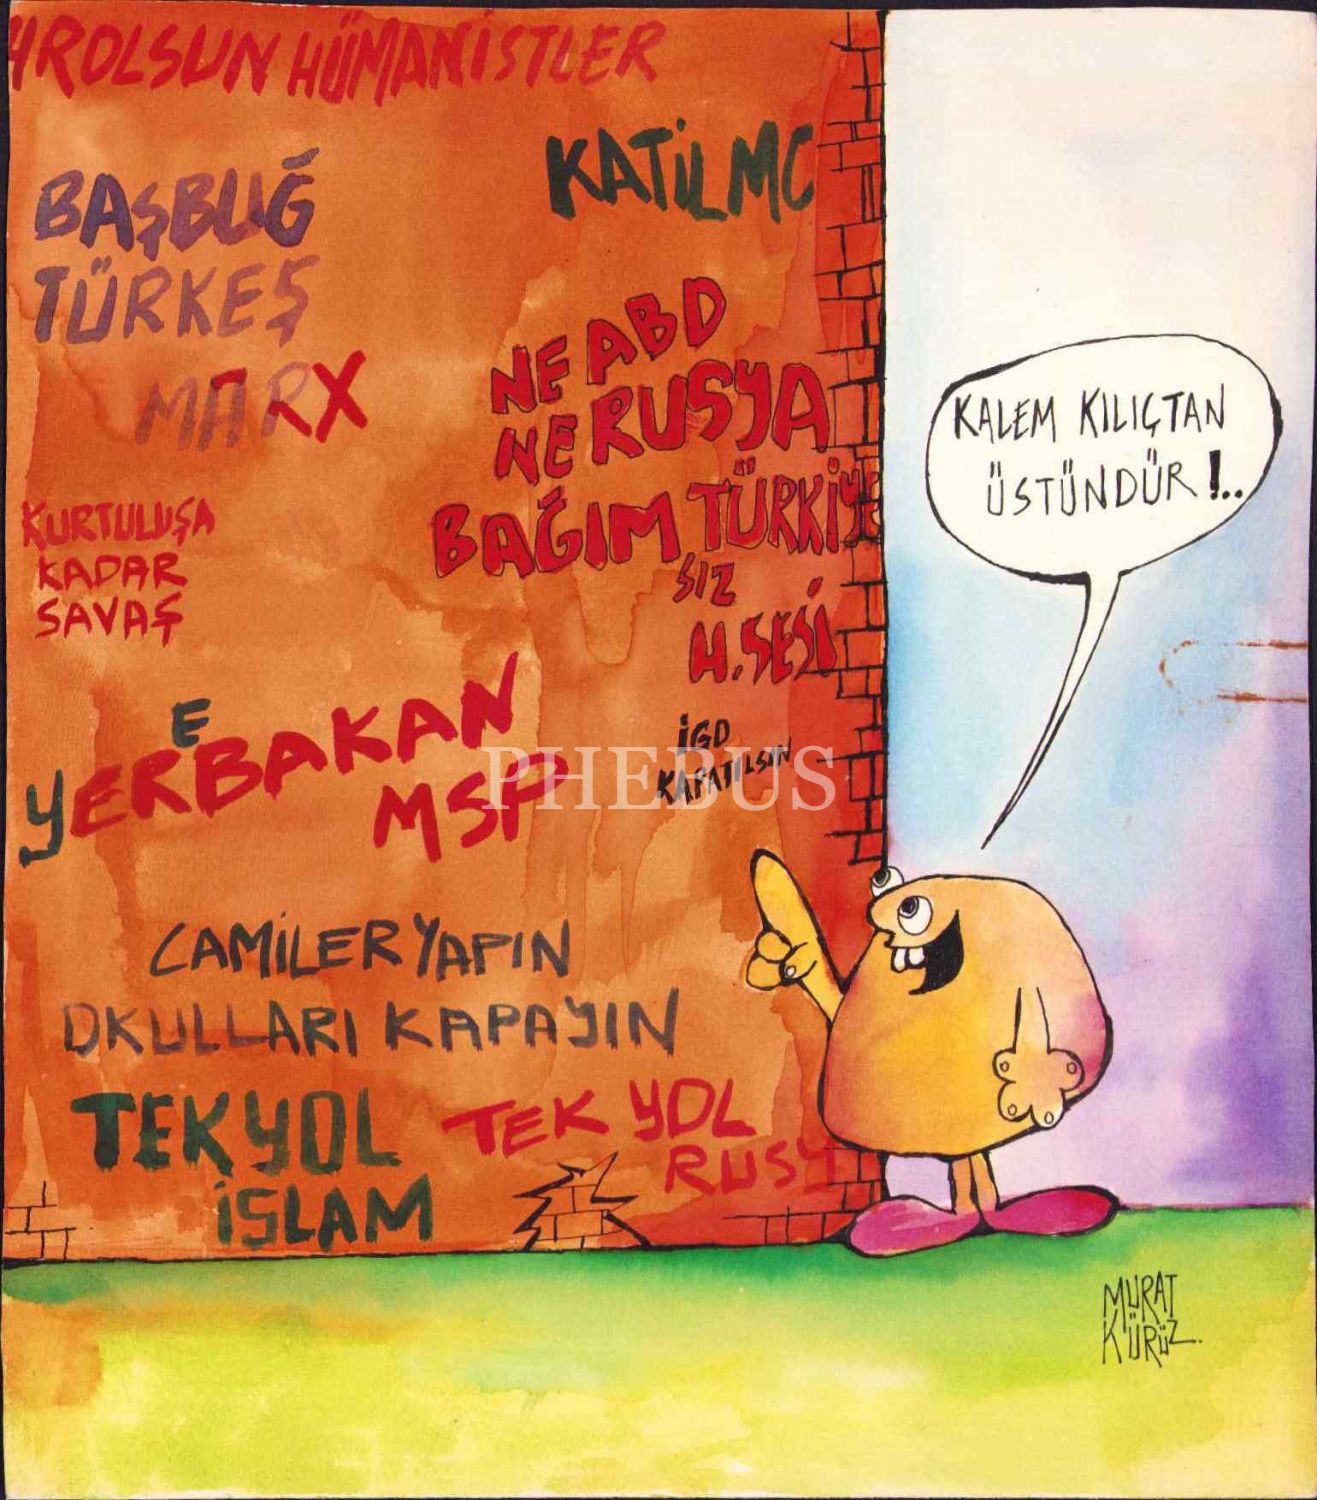 YROLSUN HÜMANİSTLER
KATİL MC
BAŞBUĞ
TÜRKEŞ
MARX
NE ABD
NE RUSYA
BAĞIM TÜRKİYE
SIZ
H. SESİ
KURTULUŞA
KADAR
SAVAŞ
E
YERBAKAN
MSP
İGD
KAPATILSIN
PHEBUS
CAMİLER YAPIN
OKULLARI KAPAYIN
TEK YOL
İSLAM
TEK YOL
RUSY
KALEM KILIÇTAN
ÜSTÜNDÜR !..
MURAT
KÜRÜZ.